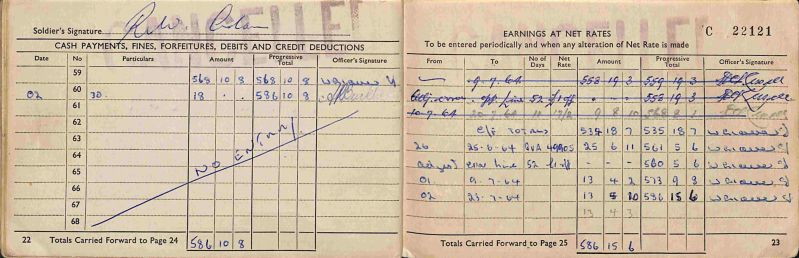 CANCELLED
Soldier's Signature
CASH PAYMENTS, FINES, FORFEITURES, DEBITS AND CREDIT DEDUCTIONS
Date No Particulars Amount Progressive Total Officer's Signature
59 568 10 8 568 10 8
02 60 30. 18 . - 586 10 8
61
62
63
64
65 NO ENTRY
66
67
68
22 Totals Carried Forward to Page 24 586 10 8
CANCELLED
EARNINGS AT NET RATES C 22121
To be entered periodically and when any alteration of Net Rate is made
From To No of Days Net Rate Amount Progressive Total Officer's Signature
9.7.64 558 19 3 559 19 3
line 52 - - - 558 19 3
10-7-64 20-7-64 11 9 8 10 568 8 1
c/f totals 534 18 7 535 18 7
26 25-6-64 25 6 11 561 5 6
line 52 - - - 560 5 6
01 9-7-64 13 4 2 573 9 8
02 23-7-64 13 5 10 586 15 6
13 4 3
Totals Carried Forward to Page 25 586 15 6 23